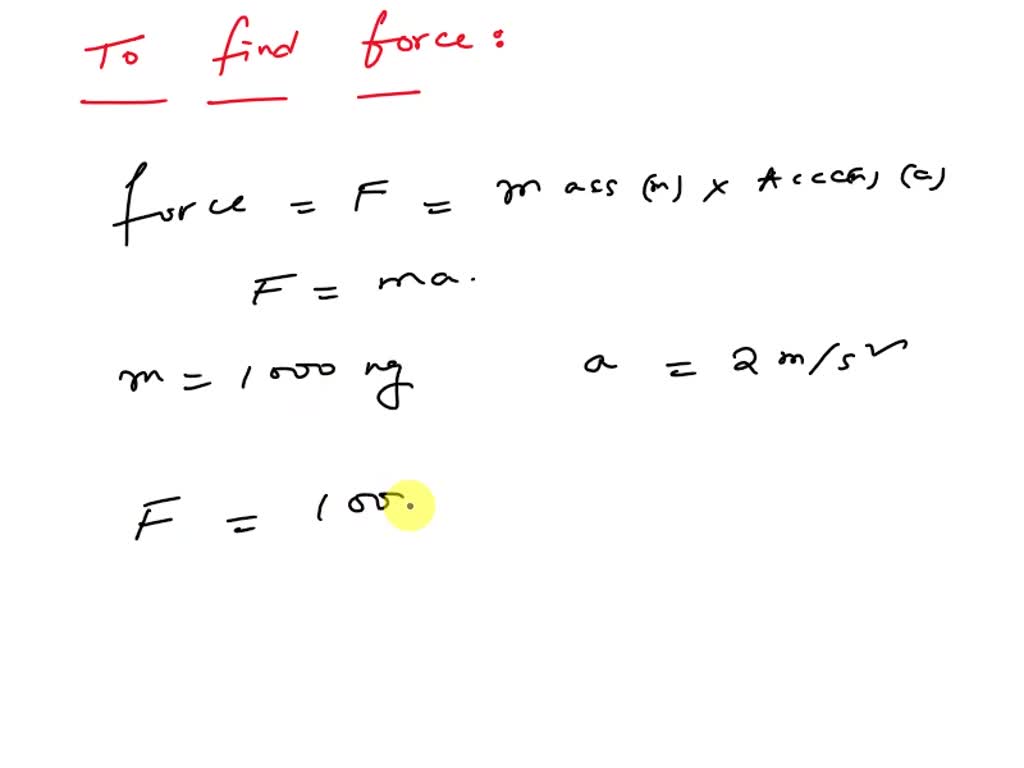 To find force:
force = F = mass (m) x Accen, (a)
F = ma.
m = 1000 kg a = 2 m/s²
F = 100